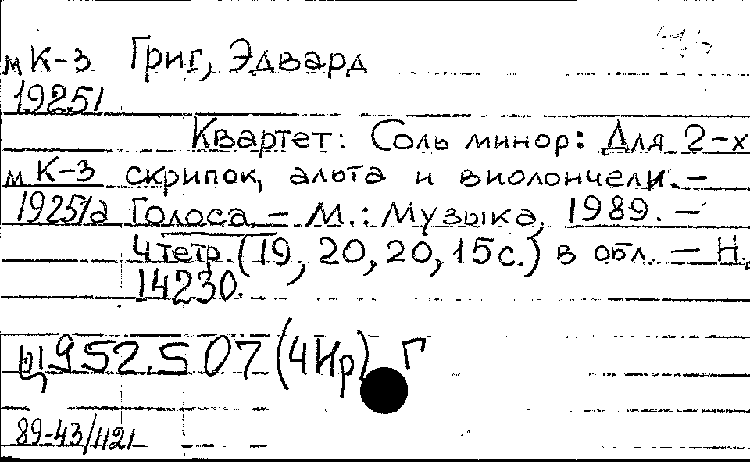 мК-3 Григ, Эдвард
19251
Квартет: Соль минор: Для 2-х
мК-3 скрипок, альта и виолончели. —
19251а Голоса. — М.: Музыка, 1989. —
4 тетр. (19, 20, 20, 15с.) в обл. — Н.
14230.
Щ952.507(4Нр) Г
89-43/1121